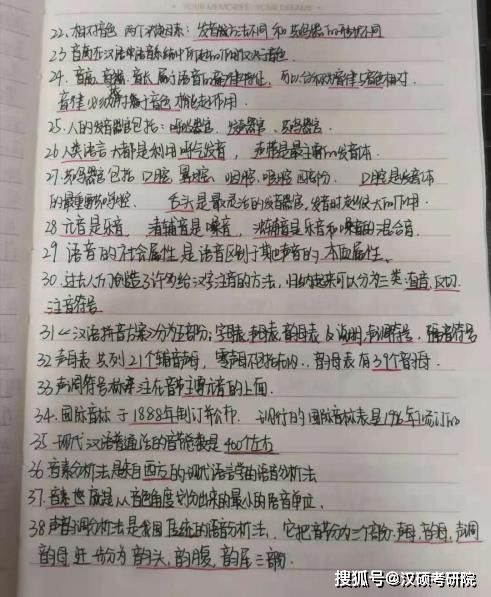 YOUR MEMORIES · YOUR DREAMS
22、相对音色 两个决定因素：发音方法不同和共鸣器的形状不同
23 音高在汉语中语音系统中所起的作用仅次于音色
24. 音高、音强、音长、属于语音的韵律特征，可以合称为音律与音色相对.
音律必须附于音色才能起作用.
25.人的发音器官包括：呼吸器官、发声器官、共鸣器官.
26 人类语言大都是利用呼气发音，声带是最主要的发音体.
27.共鸣器包括口腔、鼻腔、咽腔、喉腔四部分. 口腔是发音体
的最重要的 舌头是最灵活的发音器官，发音时起很大的作用.
28 元音是乐音，清辅音是噪音，浊辅音是乐音和噪音的混合音.
29 语音的社会属性是语音区别于其他声音的本质属性.
30.过去人们创造了许多给汉字注音的方法，归纳起来可以分为三类：直音、反切、
注音符号
31《汉语拼音方案》分为五部分：字母表、声母表、韵母表、声调符号、隔音符号
32 声母表 共列21个辅音声母，零声母不包括在内. 韵母表有39个韵母.
33 声调符号标注在音节主要元音的上面.
34.国际音标于1888年制订并公布. 现行的国际音标表是1996年修订的
35 现代汉语普通话的音节总数是400个左右
36 音素分析法是来自西方的现代语言学的语音分析法
37.音素就是从音色角度划分出来的最小的语音单位.
38 声韵调分析法是我国传统的语音分析法，它把音节分为三个部分.声母、韵母、声调
韵母进一步分为韵头、韵腹、韵尾三部分.
搜狐号@汉硕考研院